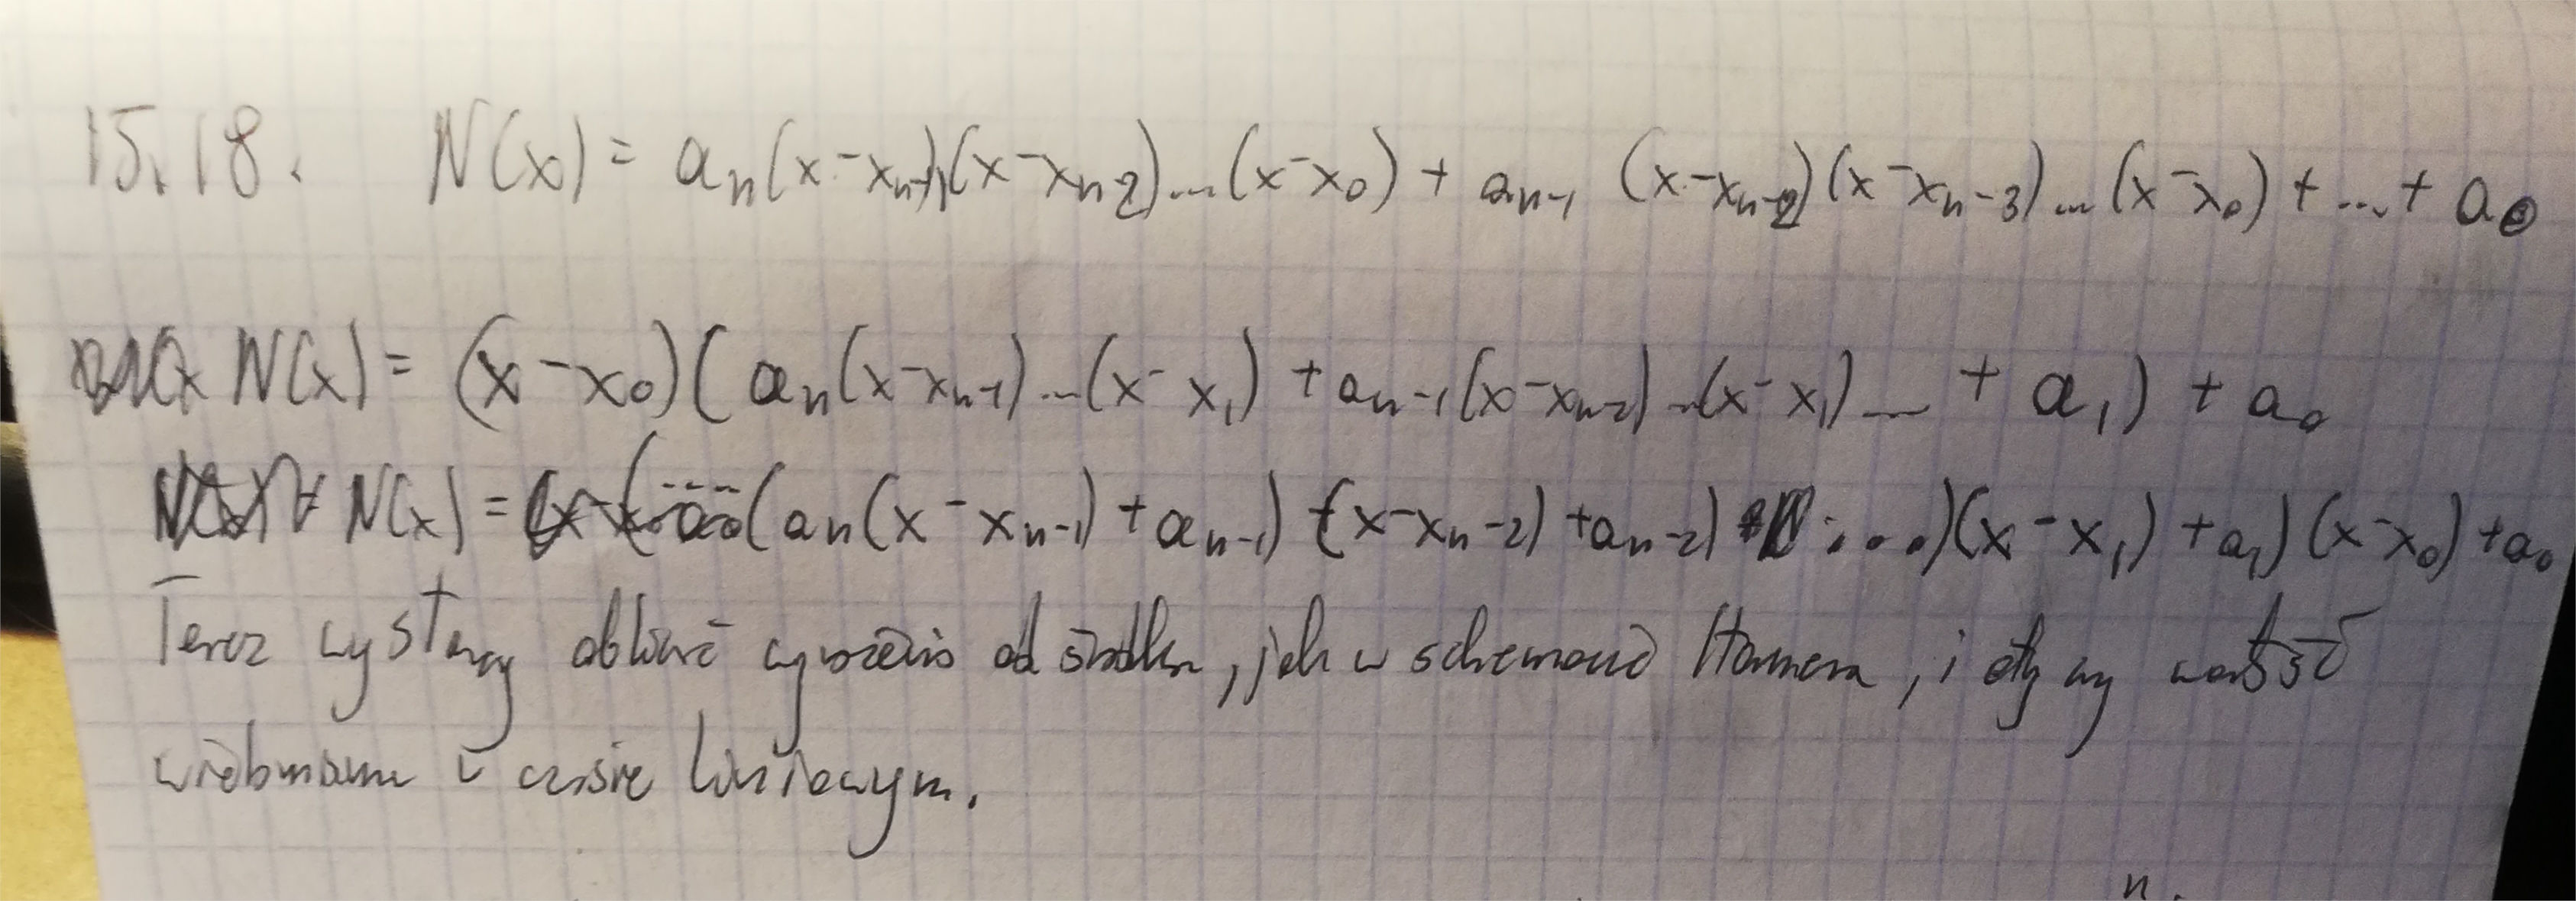 15.18. N(x) = aₙ(x-xₙ₋₁)(x-xₙ₋₂)...(x-x₀) + aₙ₋₁ (x-xₙ₋₂)(x-xₙ₋₃)...(x-x₀) + ... + a₀
N(x) = (x-x₀)(aₙ(x-xₙ₋₁)...(x-x₁) + aₙ₋₁(x-xₙ₋₂)...(x-x₁)... + a₁) + a₀
N(x) = (...(aₙ(x-xₙ₋₁)+aₙ₋₁)(x-xₙ₋₂)+aₙ₋₂)...)(x-x₁)+a₁)(x-x₀)+a₀
Teraz wystarczy obliczyć wyrażenie od środka, jak w schemacie Hornera, i otrzymamy wartość
wielomianu w czasie liniowym.
n